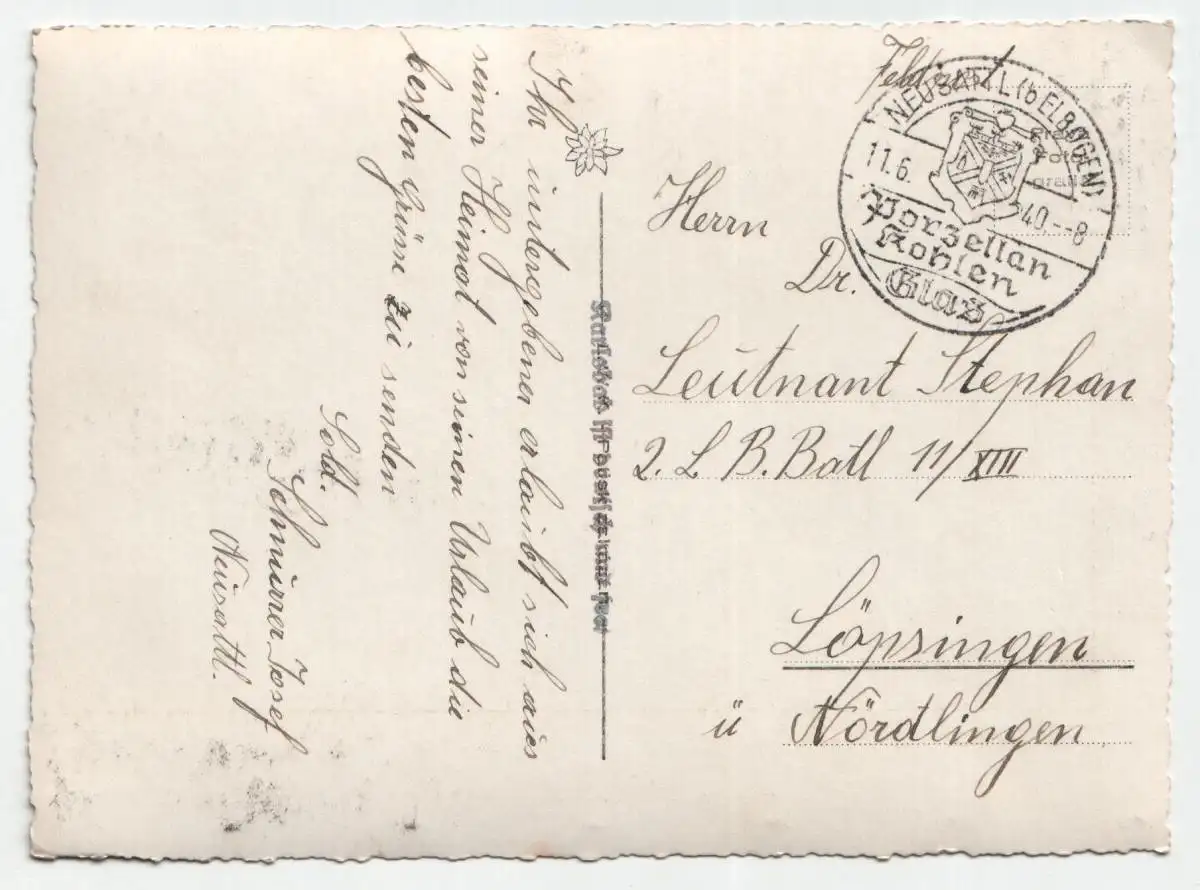 Ihr untergebener erlaubt sich aus
seiner Heimat von seinen Urlaub die
besten Grüsse zu senden
Sold.
Schnurrer Josef
Neusattl.
Feldpost
NEUSATTL (b ELBOGEN)
11.6. 40.--8
Porzellan
Kohlen
Glas
Herrn
Dr.
Leutnant Stephan
2. L. B. Batl 11/XIII
Löpsingen
ü Nördlingen